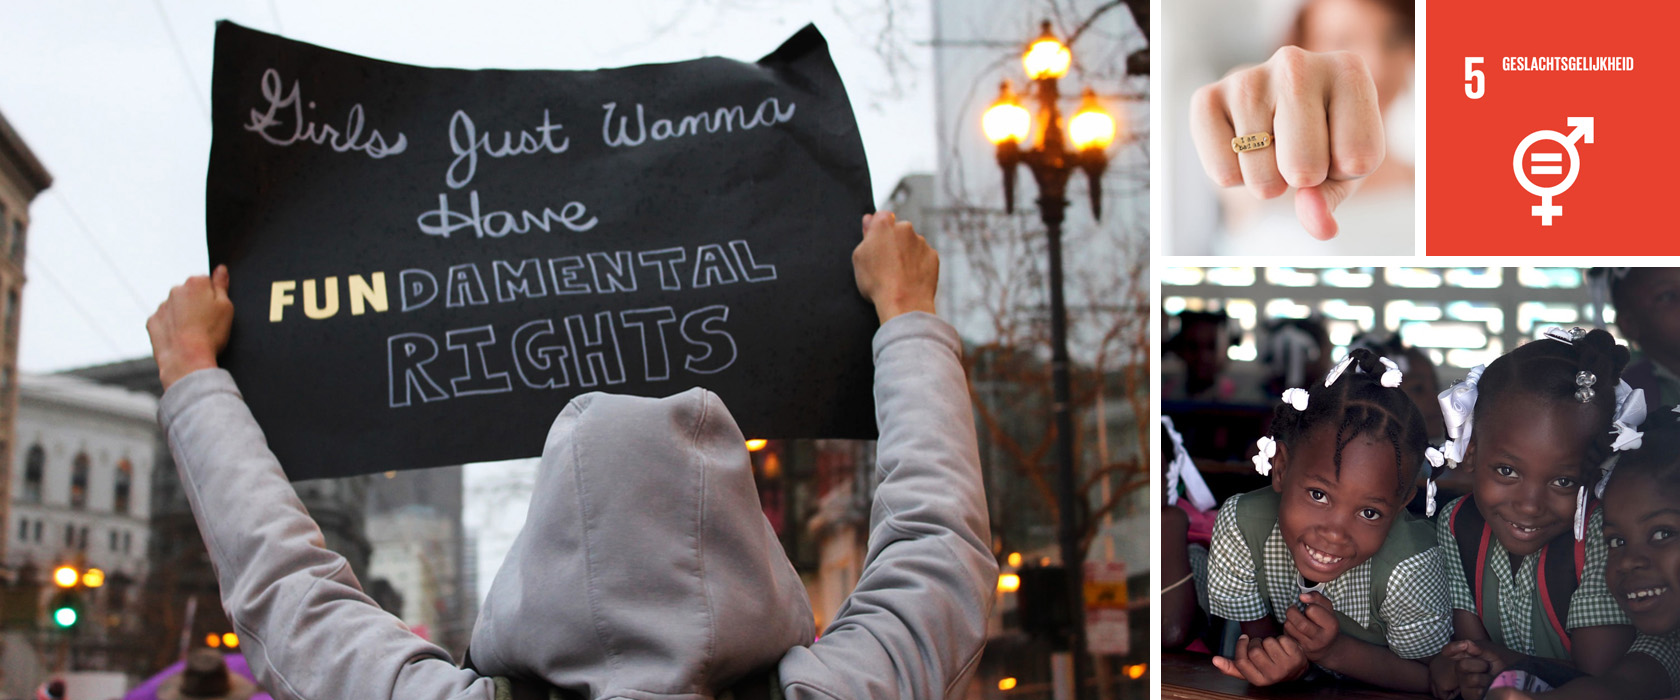 Girls Just Wanna
Have
FUNDAMENTAL
RIGHTS
I am
bad ass
5 GESLACHTSGELIJKHEID